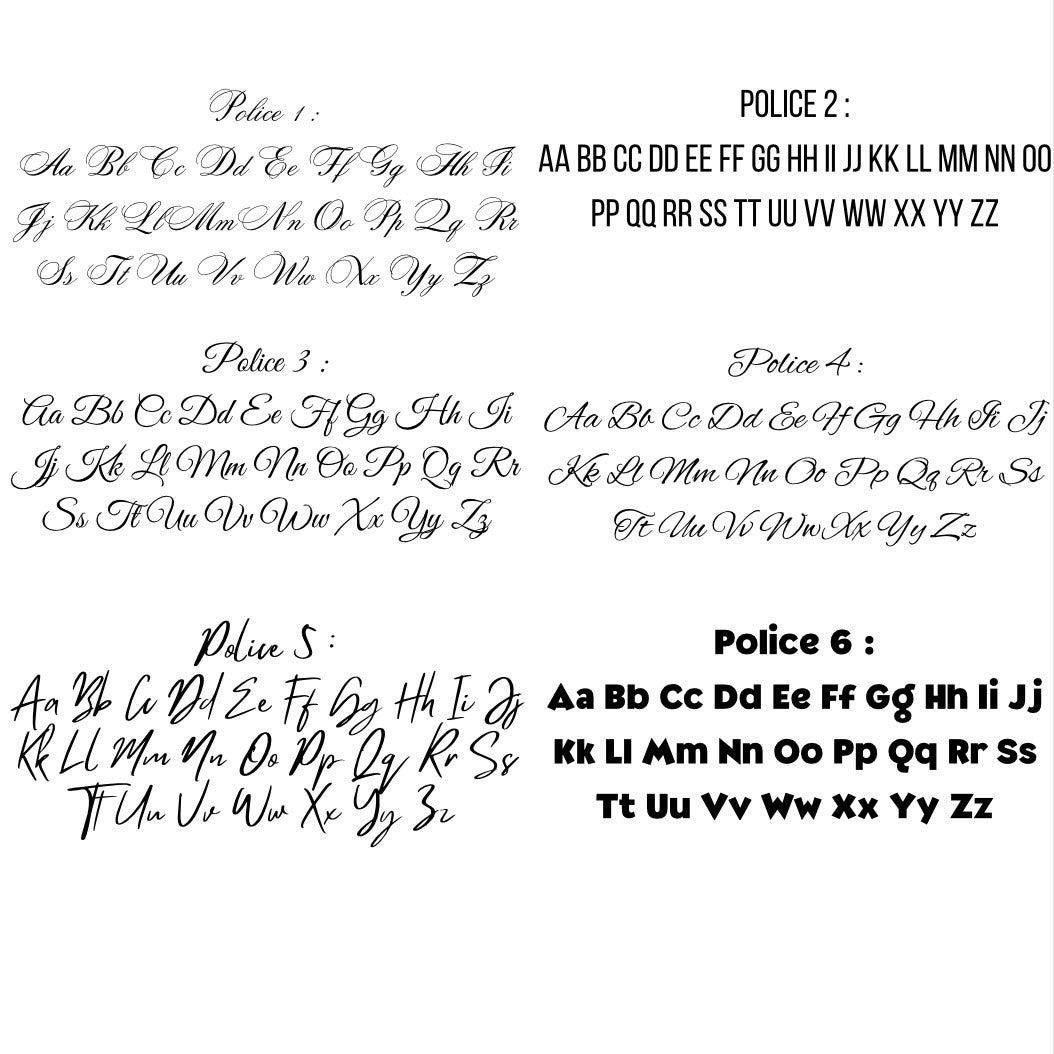 Police 1 :
Aa Bb Cc Dd Ee Ff Gg Hh Ii
Jj Kk Ll Mm Nn Oo Pp Qq Rr
Ss Tt Uu Vv Ww Xx Yy Zz
POLICE 2 :
AA BB CC DD EE FF GG HH II JJ KK LL MM NN OO
PP QQ RR SS TT UU VV WW XX YY ZZ
Police 3 :
Aa Bb Cc Dd Ee Ff Gg Hh Ii
Jj Kk Ll Mm Nn Oo Pp Qq Rr
Ss Tt Uu Vv Ww Xx Yy Zz
Police 4 :
Aa Bb Cc Dd Ee Ff Gg Hh Ii Jj
Kk Ll Mm Nn Oo Pp Qq Rr Ss
Tt Uu Vv Ww Xx Yy Zz
Police 5 :
Aa Bb Cc Dd Ee Ff Gg Hh Ii Jj
Kk Ll Mm Nn Oo Pp Qq Rr Ss
Tt Uu Vv Ww Xx Yy Zz
Police 6 :
Aa Bb Cc Dd Ee Ff Gg Hh Ii Jj
Kk Ll Mm Nn Oo Pp Qq Rr Ss
Tt Uu Vv Ww Xx Yy Zz